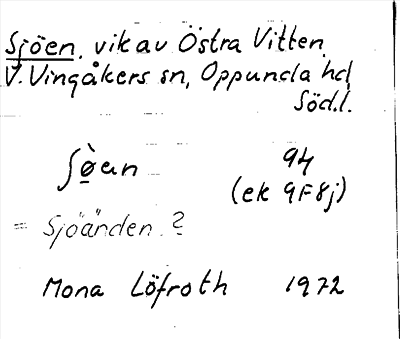 Sjöen, vik av Östra Vitten,
V. Vingåkers sn, Oppunda hd,
Söd.l.
ʃø̀an 94
(ek 9F8j)
= Sjöänden ?
Mona Löfroth 1972